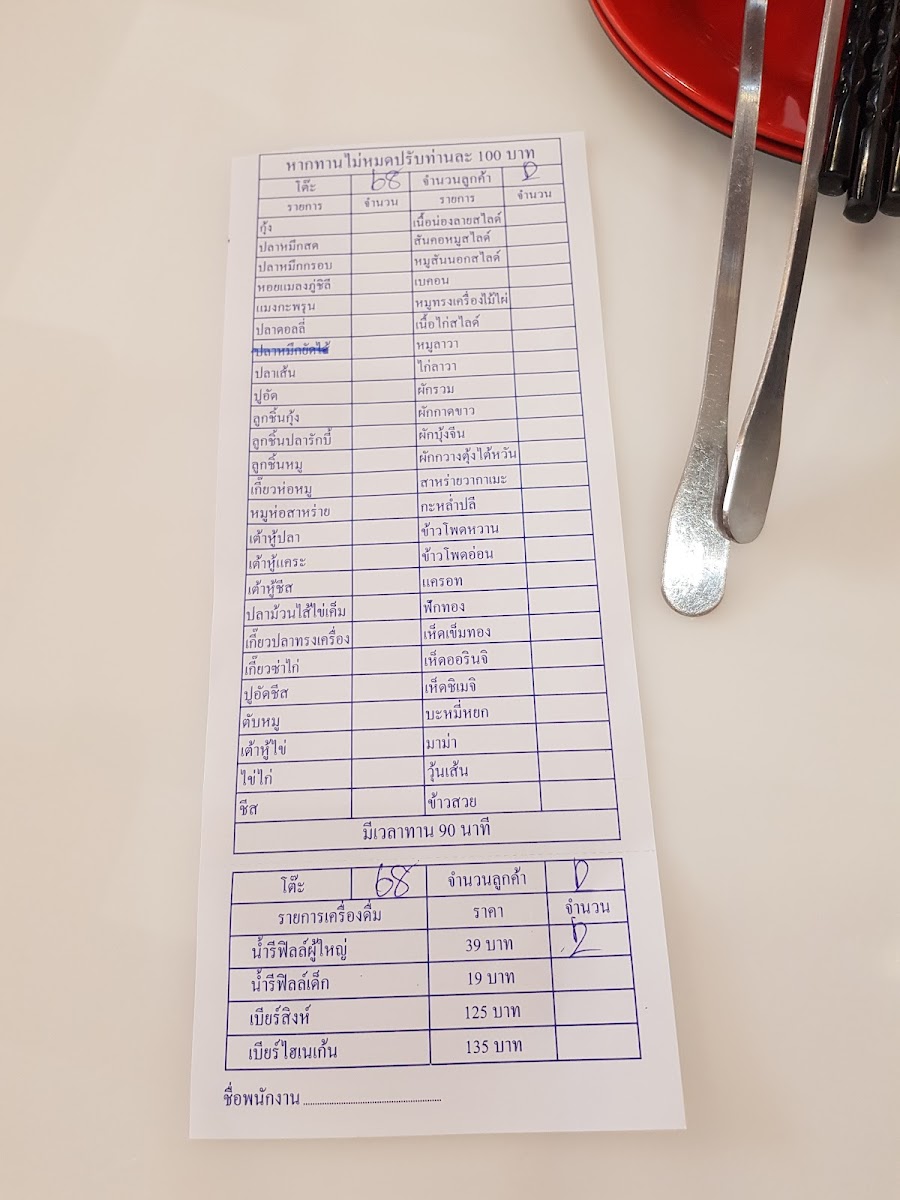 หากทานไม่หมดปรับท่านละ 100 บาท
โต๊ะ 68 จำนวนลูกค้า 2
รายการ จำนวน รายการ จำนวน
กุ้ง เนื้อน่องลายสไลด์
ปลาหมึกสด สันคอหมูสไลด์
ปลาหมึกกรอบ หมูสันนอกสไลด์
หอยแมลงภู่ชิลี เบคอน
แมงกะพรุน หมูทรงเครื่องไม้ไผ่
ปลาดอลลี่ เนื้อไก่สไลด์
ปลาหมึกยัดไส้ หมูลาวา
ปลาเส้น ไก่ลาวา
ปูอัด ผักรวม
ลูกชิ้นกุ้ง ผักกาดขาว
ลูกชิ้นปลารักบี้ ผักบุ้งจีน
ลูกชิ้นหมู ผักกวางตุ้งไต้หวัน
เกี๊ยวห่อหมู สาหร่ายวากาเมะ
หมูห่อสาหร่าย กะหล่ำปลี
เต้าหู้ปลา ข้าวโพดหวาน
เต้าหู้แคระ ข้าวโพดอ่อน
เต้าหู้ชีส แครอท
ปลาม้วนไส้ไข่เค็ม ฟักทอง
เกี๊ยวปลาทรงเครื่อง เห็ดเข็มทอง
เกี๊ยวซ่าไก่ เห็ดออรินจิ
ปูอัดชีส เห็ดชิเมจิ
ตับหมู บะหมี่หยก
เต้าหู้ไข่ มาม่า
ไข่ไก่ วุ้นเส้น
ชีส ข้าวสวย
มีเวลาทาน 90 นาที
โต๊ะ 68 จำนวนลูกค้า 2
รายการเครื่องดื่ม ราคา จำนวน
น้ำรีฟิลล์ผู้ใหญ่ 39 บาท 2
น้ำรีฟิลล์เด็ก 19 บาท
เบียร์สิงห์ 125 บาท
เบียร์ไฮเนเก้น 135 บาท
ชื่อพนักงาน